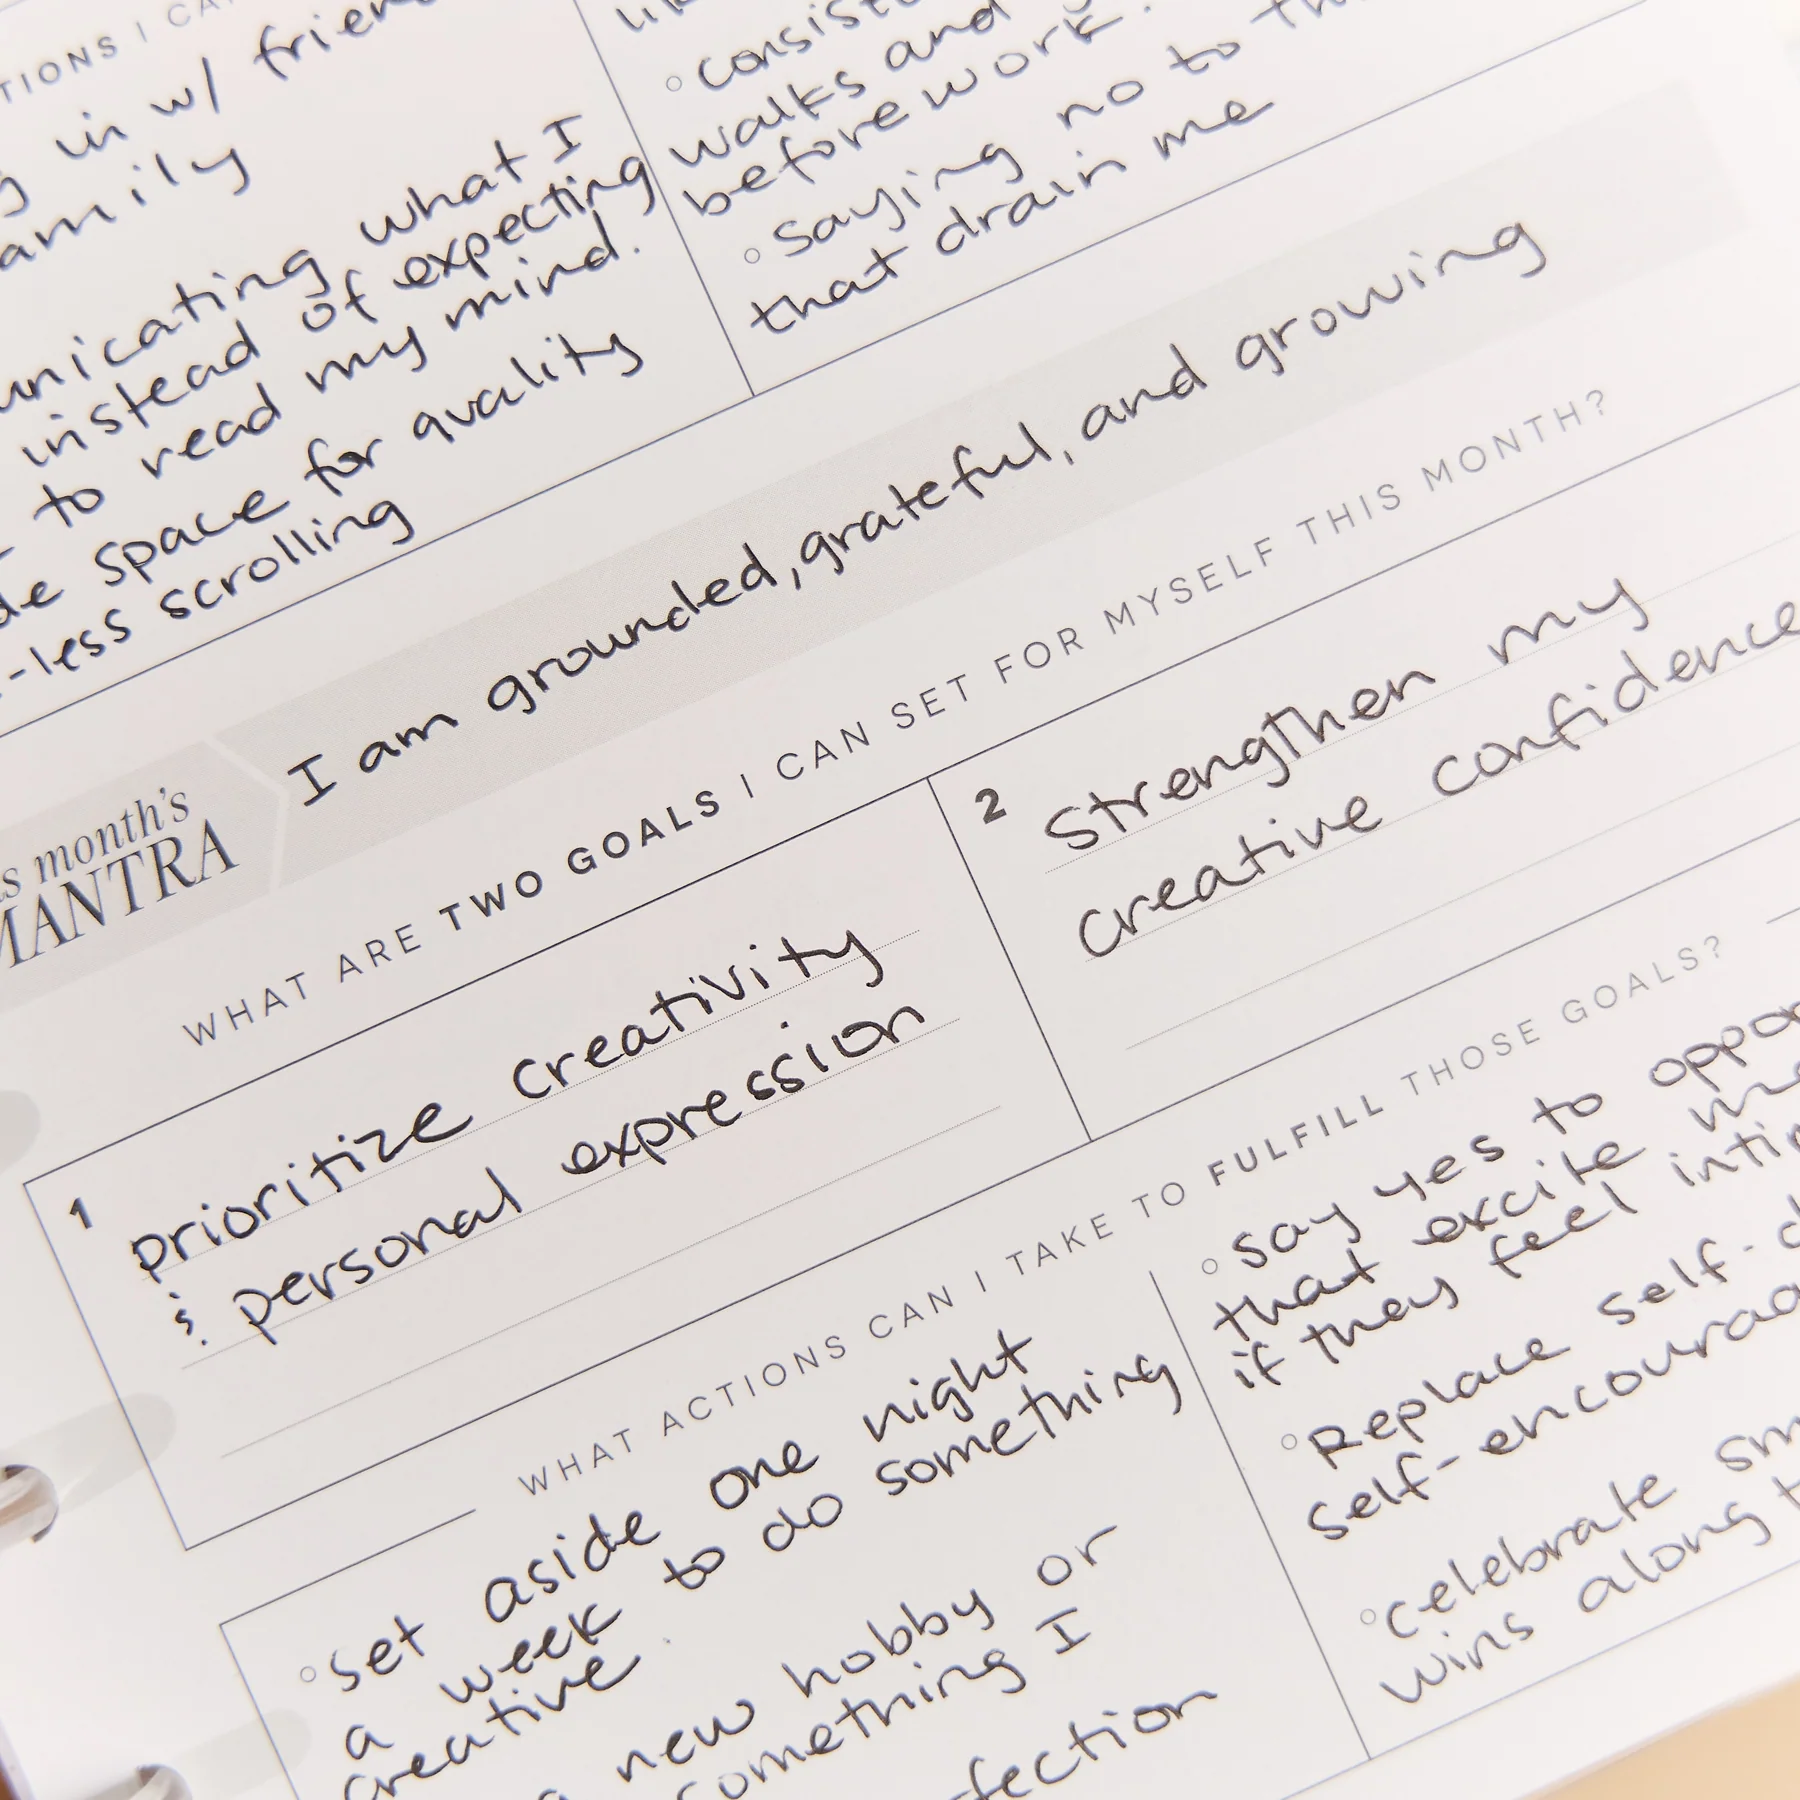 TIONS I CA
in w/ friend
amily
unicating what I
instead of expecting
to read my mind.
space for quality
-less scrolling
° Consist
walks and
before work.
° Saying no to th
that drain me
s month's
MANTRA
I am grounded, grateful, and growing
WHAT ARE TWO GOALS I CAN SET FOR MYSELF THIS MONTH?
1
prioritize creativity
& personal expression
2
Strengthen my
creative confidence
WHAT ACTIONS CAN I TAKE TO FULFILL THOSE GOALS?
° Set aside one night
a week to do something
creative.
new hobby or
something I
fection
° Say yes to oppor
that excite me
if they feel intim
° Replace self-d
self-encourag
° Celebrate sm
wins along t